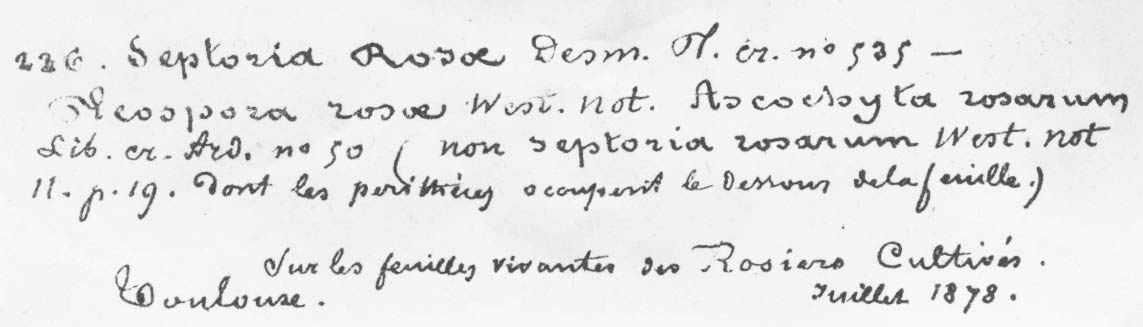 226. Septoria Rosæ Desm. Pl. cr. no 535 —
Phleospora rosæ West. Not. Ascochyta rosarum
Lib. cr. Ard. no 50 (non Septoria rosarum West. Not
11. p. 19. Dont les perithèces occupent le dessous de la feuille.)
Sur les feuilles vivantes des Rosiers Cultivés.
Toulouse. Juillet 1878.